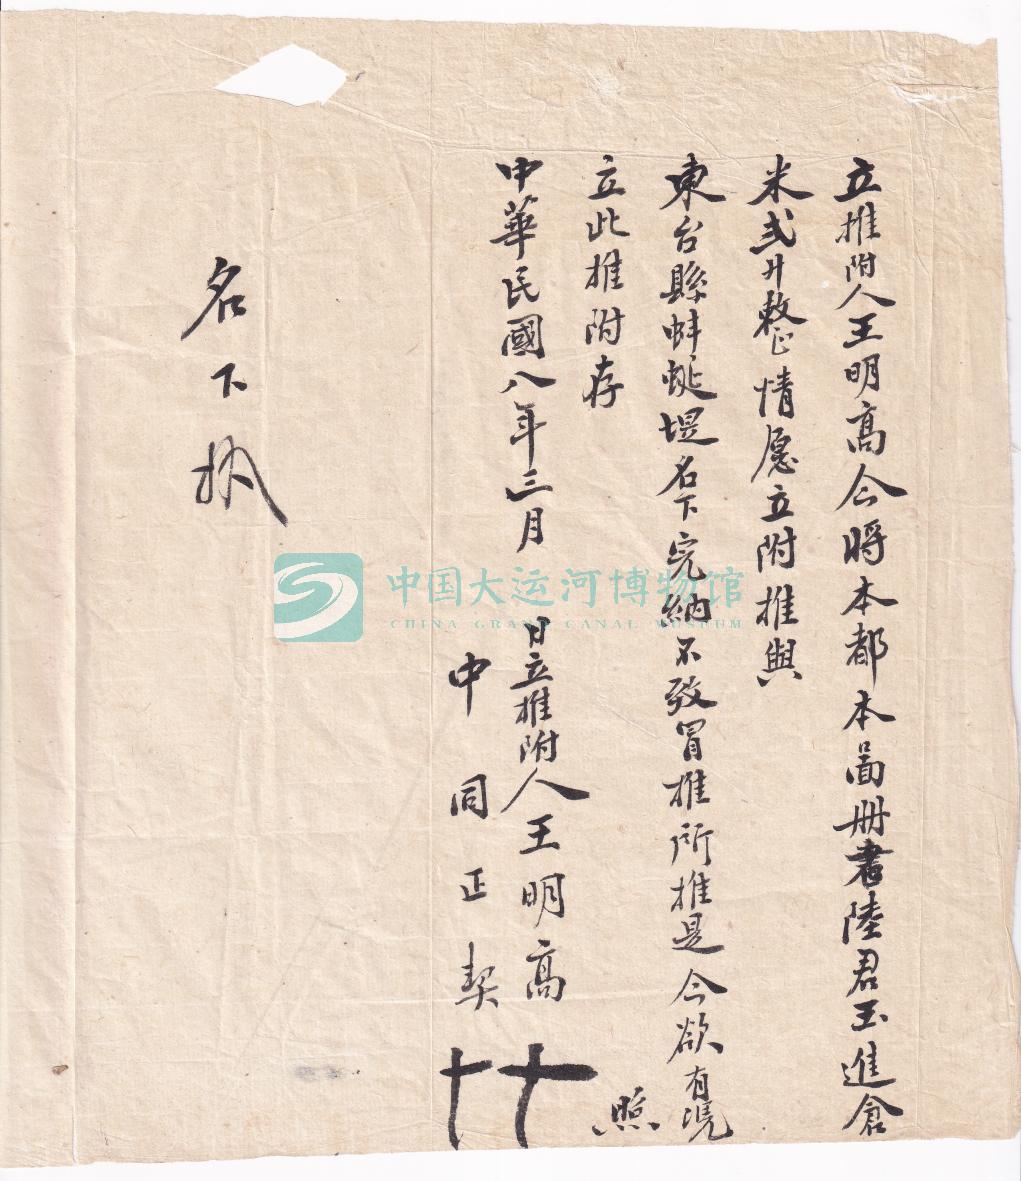 立推附人王明髙今將本都本啚册書陸君玉進倉
米弍升整情愿立附推與
東台縣蚌蜒堤名下完納不致冒推所推是今欲有凴
立此推附存
照
中華民國八年三月 日立推附人王明髙 十
中 同正契 十
名下执
中国大运河博物馆
CHINA GRAND CANAL MUSEUM